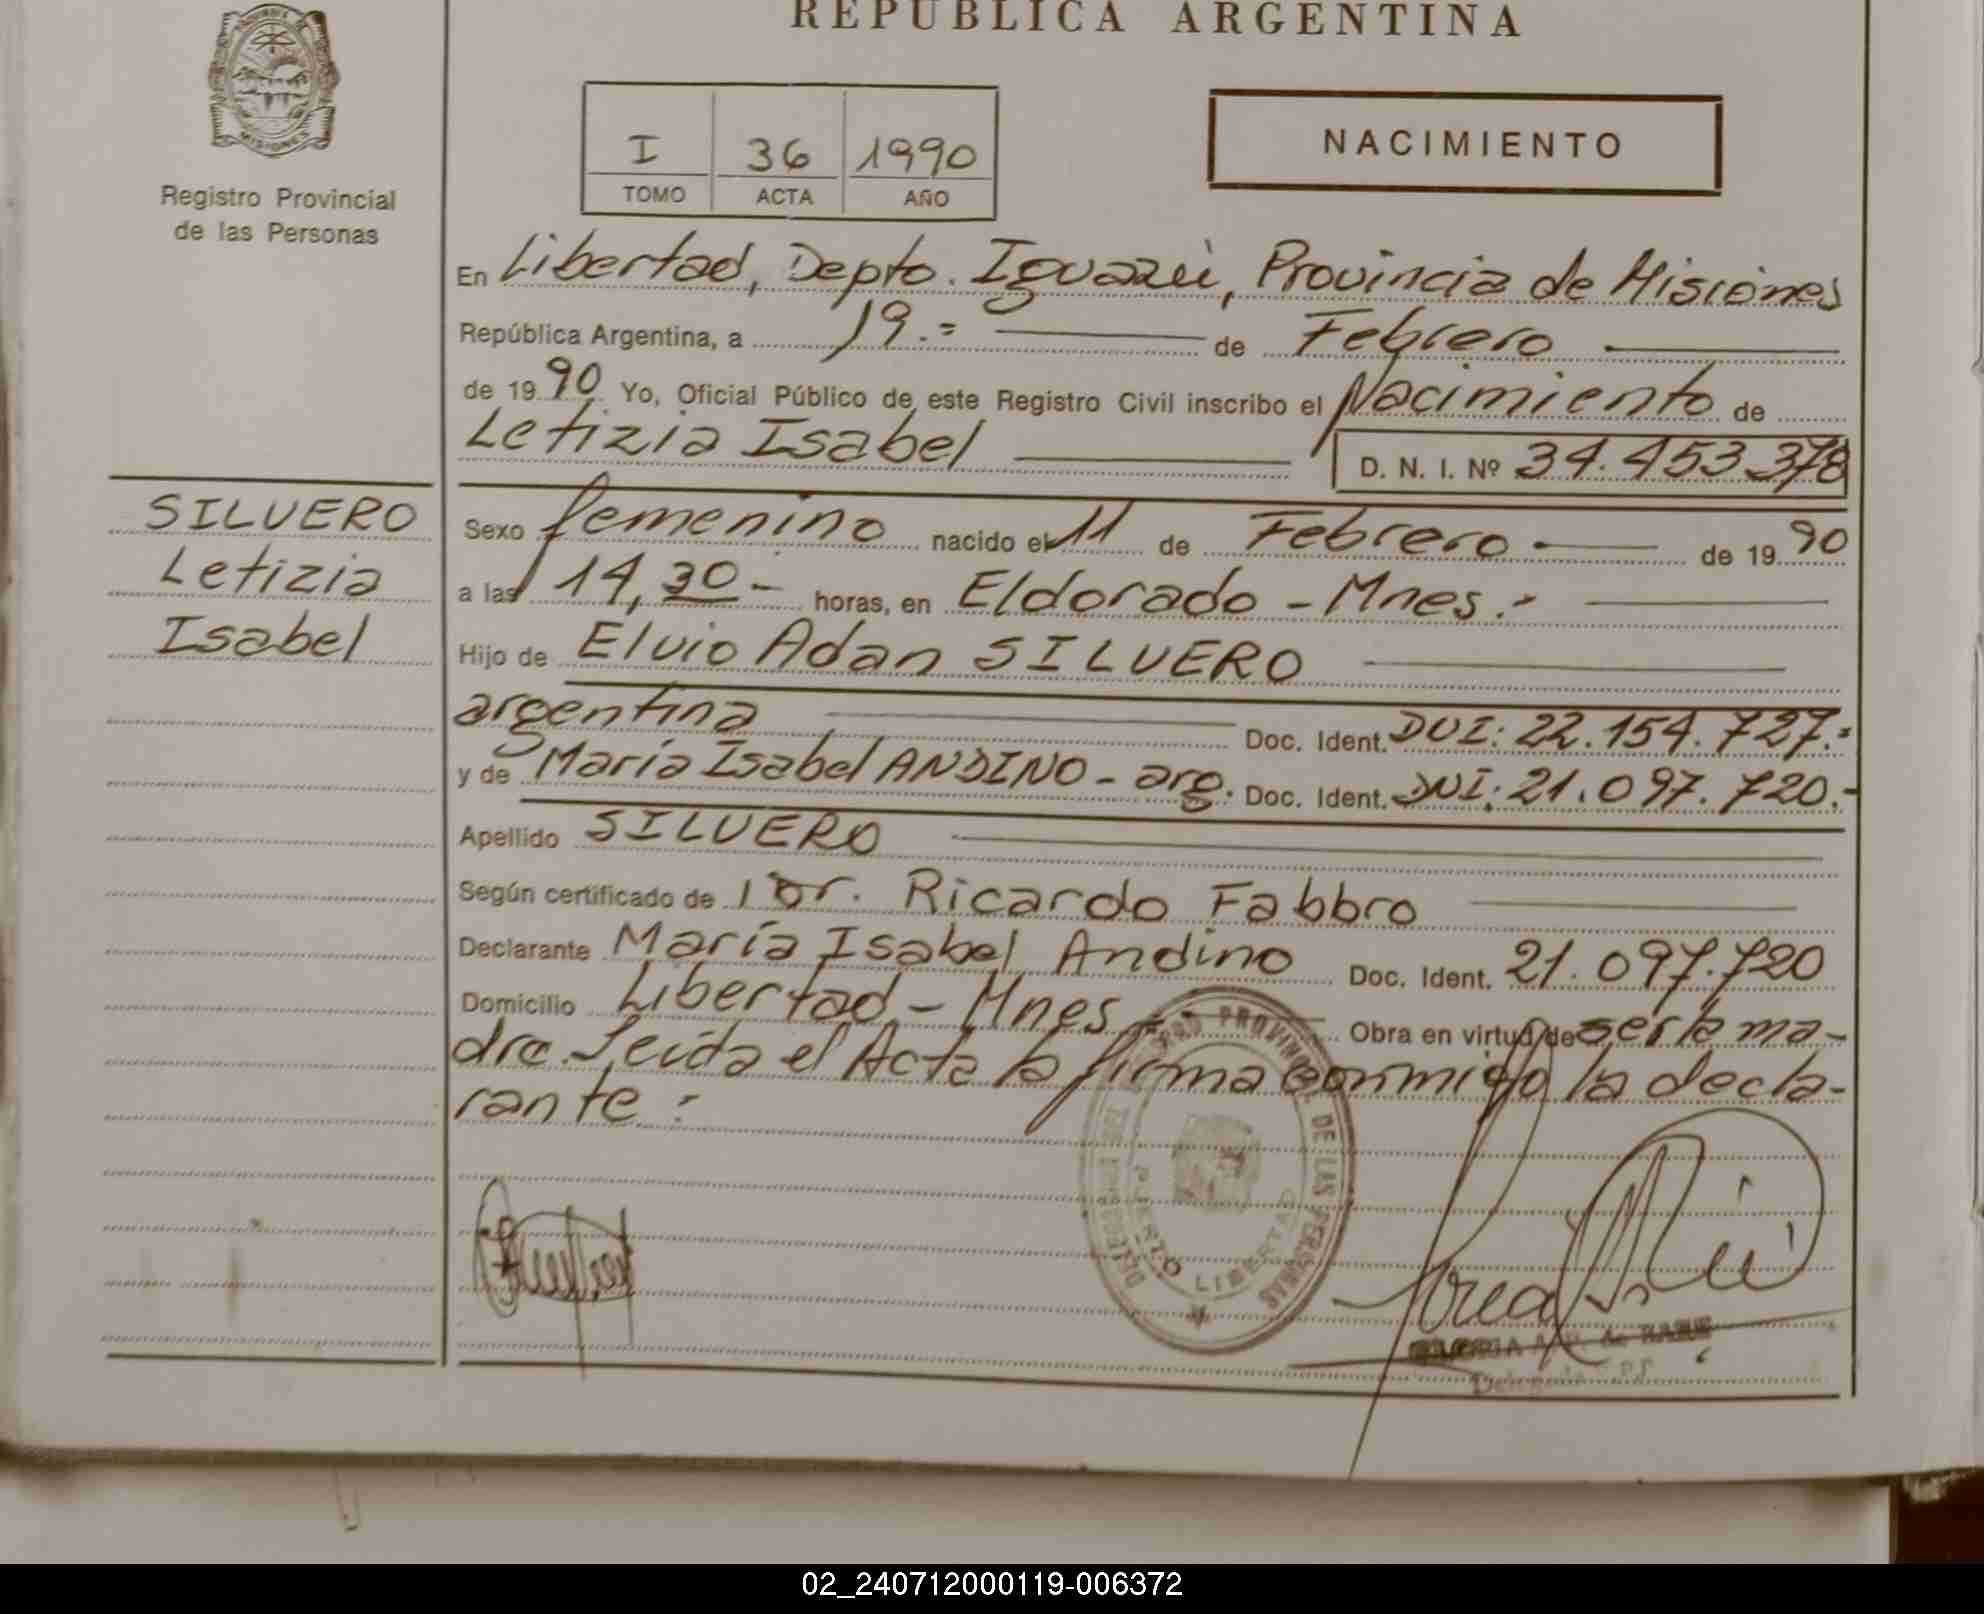 REPUBLICA ARGENTINA
MISIONES
Registro Provincial
de las Personas
I 36 1990
TOMO ACTA AÑO
NACIMIENTO
En Libertad, Depto. Iguazú, Provincia de Misiones
República Argentina, a 19.= de Febrero
de 1990 Yo, Oficial Público de este Registro Civil inscribo el Nacimiento de
Letizia Isabel D. N. I. Nº 34.453.378
SILVERO
Letizia
Isabel
Sexo femenino nacido el 11 de Febrero de 1990
a las 14,30- horas, en Eldorado - Mnes.-
Hijo de Elvio Adan SILVERO
argentina Doc. Ident. DUI: 22.154.727.=
y de María Isabel ANDINO - arg. Doc. Ident. DNI: 21.097.720.-
Apellido SILVERO
Según certificado de Dr. Ricardo Fabbro
Declarante María Isabel Andino Doc. Ident. 21.097.720
Domicilio Libertad - Mnes. Obra en virtud de ser la ma-
dre. Leida el Acta la firma conmigo la decla-
rante =
PROVINCIAL DE LAS PERSONAS
PUERTO LIBERTAD
de RARE
02_240712000119-006372